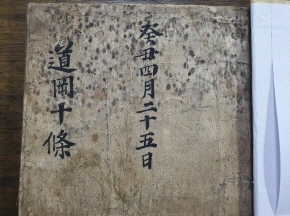 癸丑四月二十五日
道岡十條